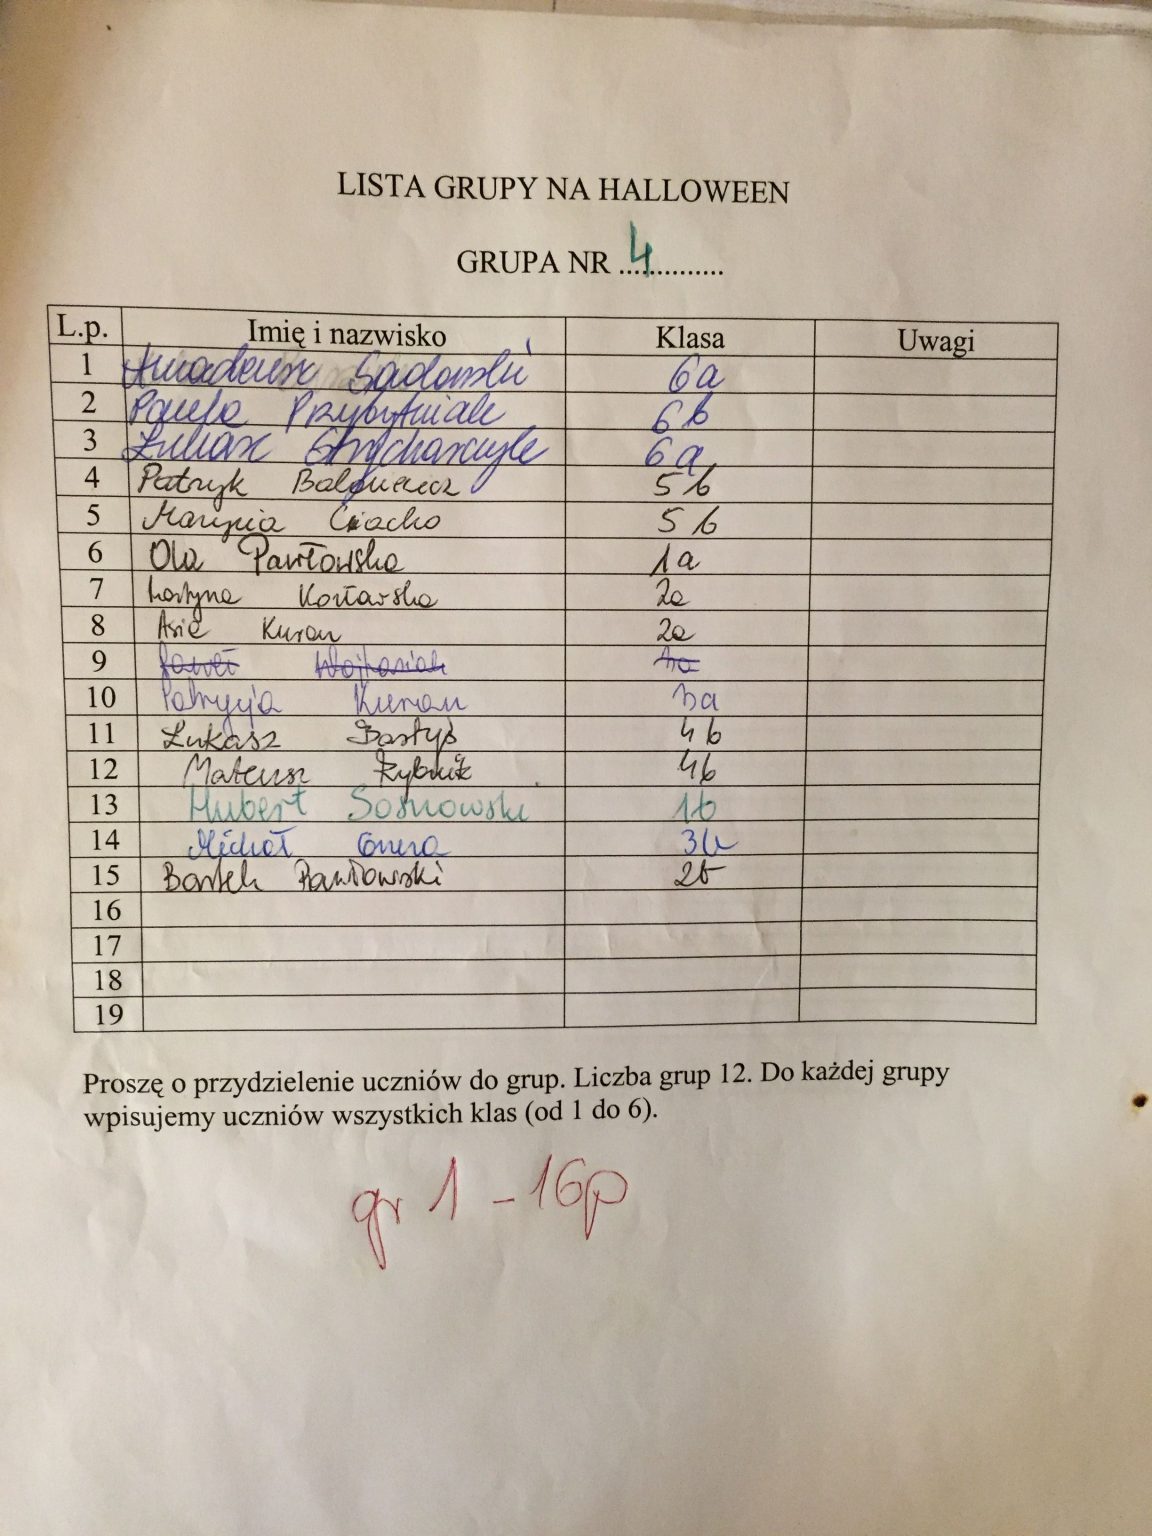 LISTA GRUPY NA HALLOWEEN
GRUPA NR 4..............
L.p. Imię i nazwisko Klasa Uwagi
1 Amadeusz Sadowski 6a
2 Paula Przybytniak 6b
3 Łukasz 6a
4 Patryk 5b
5 Marysia Ciacho 5b
6 Ola Pawłowska 1a
7 2a
8 Asia Kuran 2a
9 Paweł
10 Patrycja 3a
11 Łukasz Bartyś 4b
12 Mateusz 4b
13 Hubert Sosnowski 1b
14 Michał 3b
15 Bartek Pawłowski 2b
16
17
18
19
Proszę o przydzielenie uczniów do grup. Liczba grup 12. Do każdej grupy
wpisujemy uczniów wszystkich klas (od 1 do 6).
gr 1 - 16p